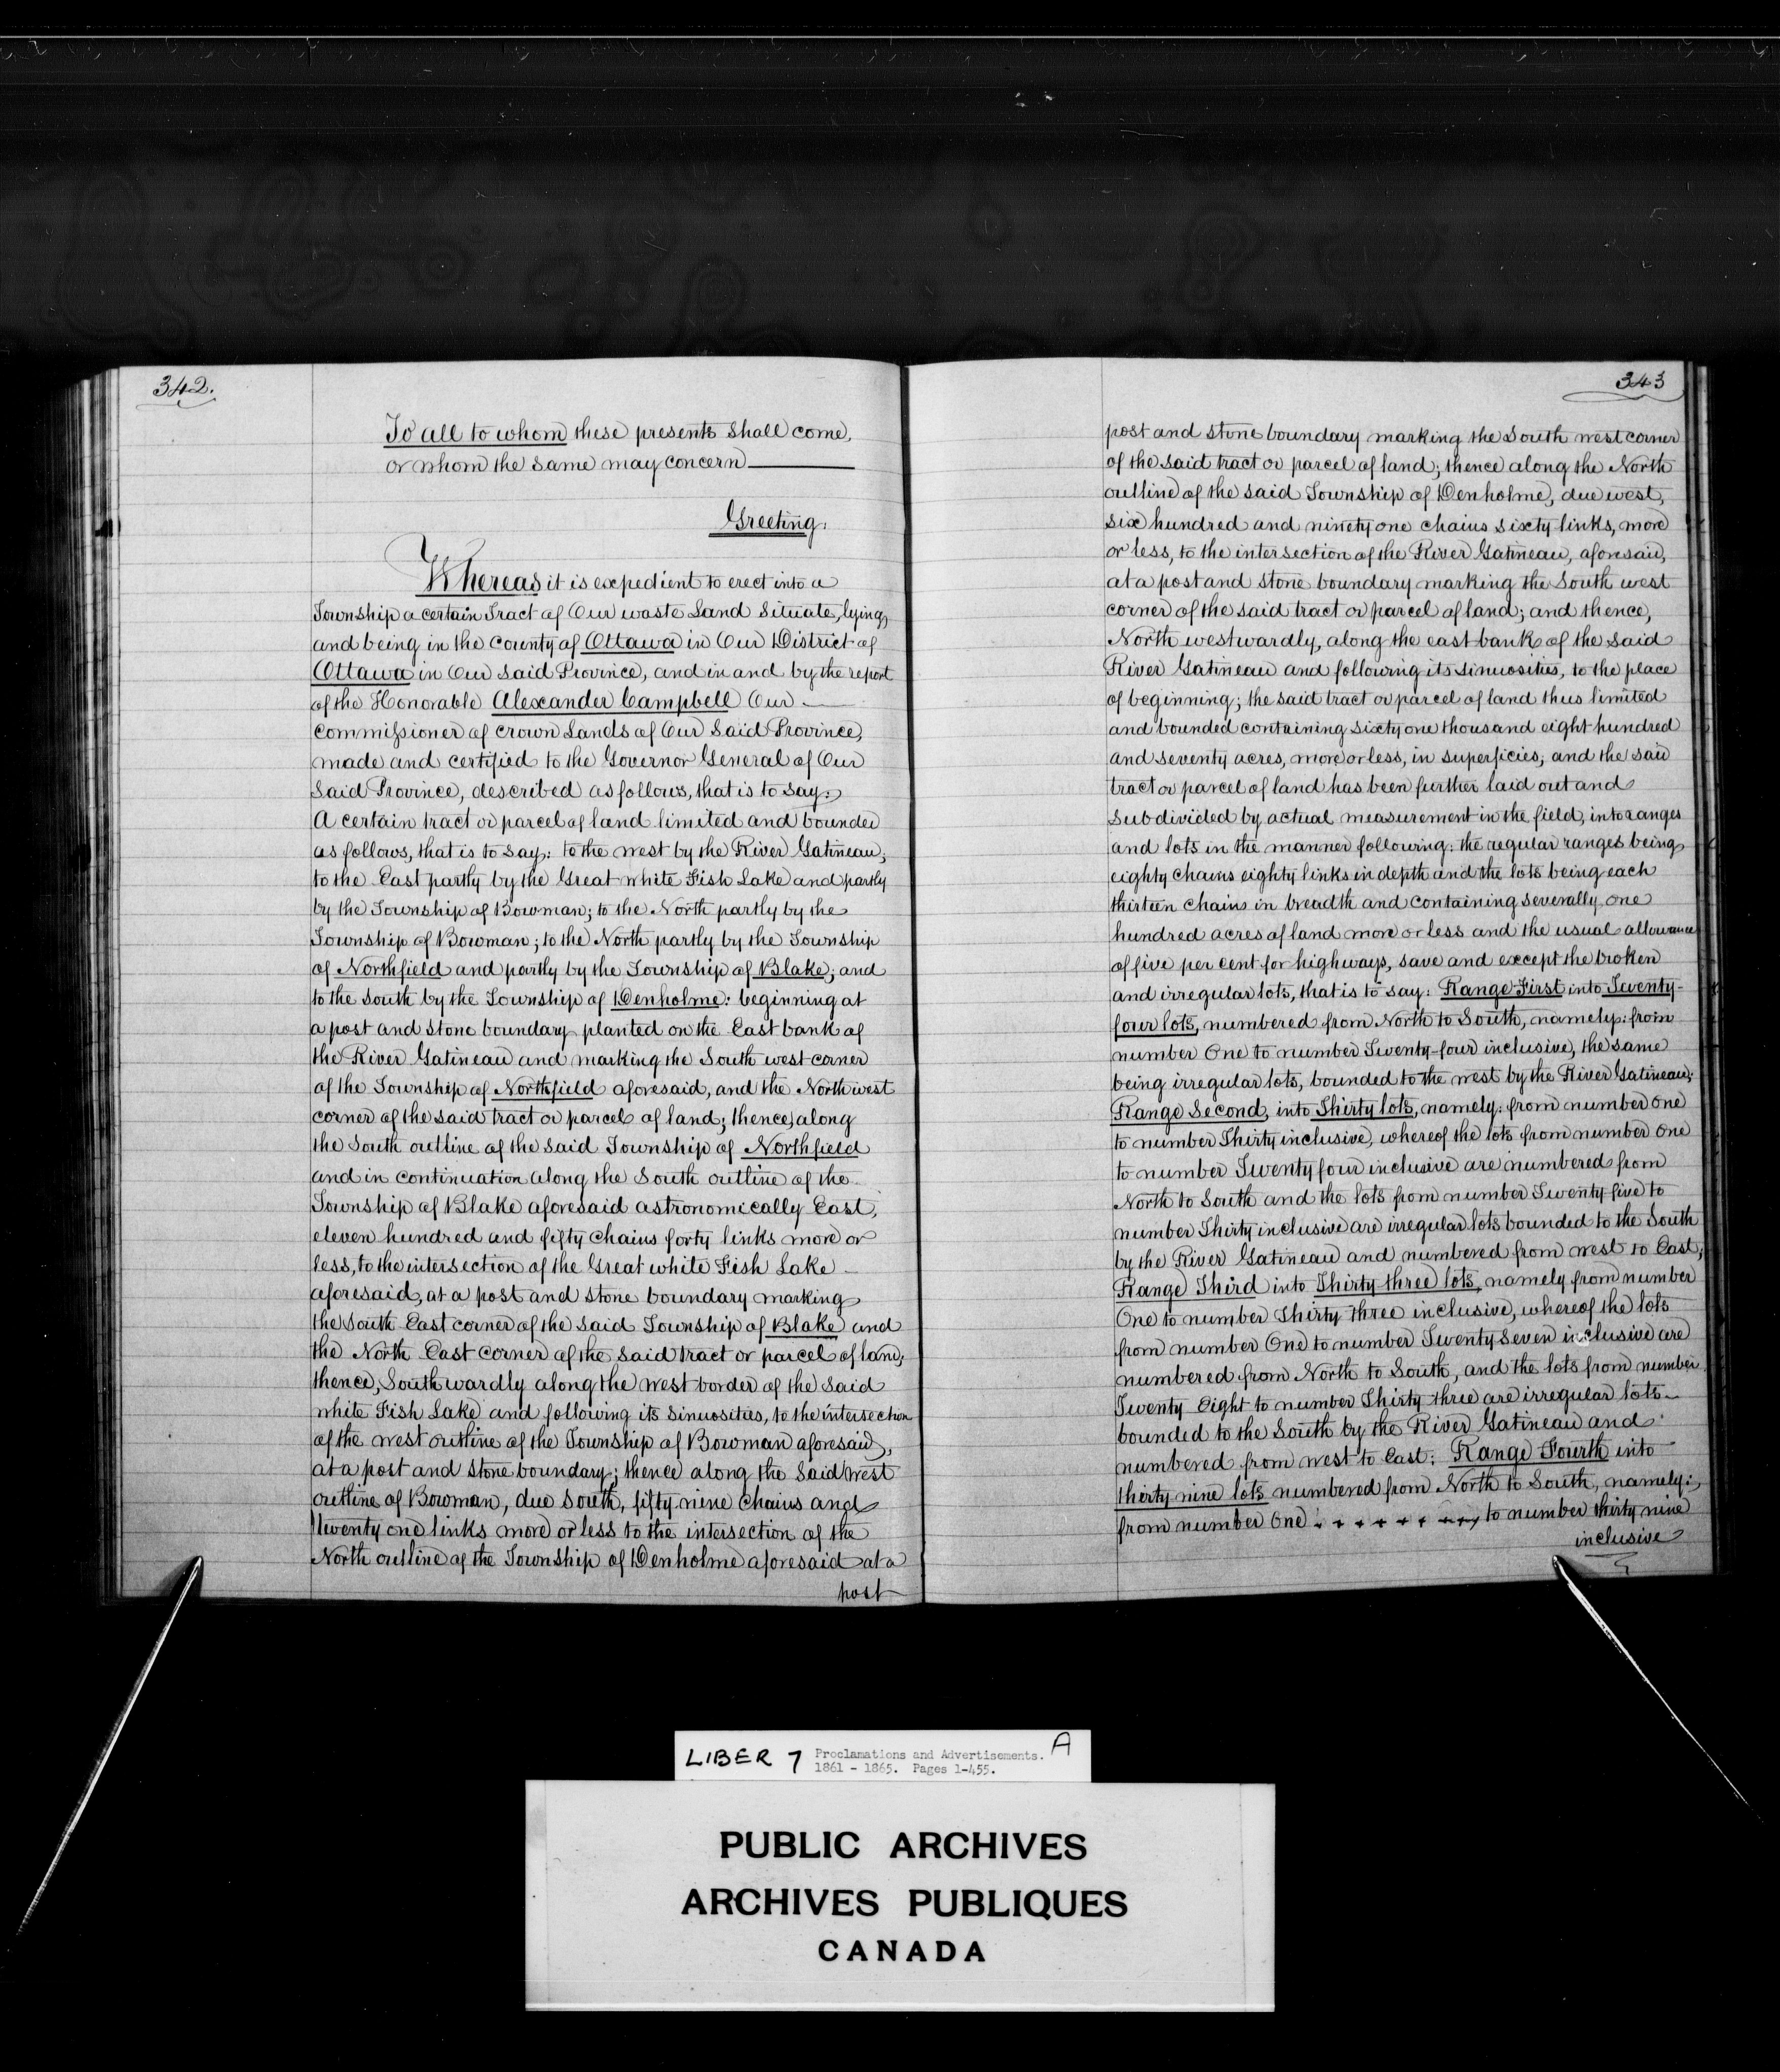 342.
To all to whom these presents shall come,
or whom the same may concern
Greeting.
Whereas it is expedient to erect into a
Township a certain Tract of Our waste Land situate, lying
and being in the County of Ottawa in Our District of
Ottawa in Our said Province, and in and by the report
of the Honorable Alexander Campbell Our
Commissioner of Crown Lands of Our Said Province,
made and certified to the Governor General of Our
Said Province, described as follows, that is to say:
A certain tract or parcel of land limited and bounded
as follows, that is to say: to the west by the River Gatineau;
to the East partly by the Great white Fish Lake and partly
by the Township of Bowman; to the North partly by the
Township of Bowman; to the North partly by the Township
of Northfield and partly by the Township of Blake; and
to the south by the Township of Denholme: beginning at
a post and stone boundary planted on the East bank of
the River Gatineau and marking the South west corner
of the Township of Northfield aforesaid, and the North west
corner of the said tract or parcel of land; thence, along
the South outline of the said Township of Northfield
and in continuation along the South outline of the
Township of Blake aforesaid astronomically East,
eleven hundred and fifty chains forty links more or
less, to the intersection of the Great white Fish Lake
aforesaid, at a post and stone boundary marking
the South East corner of the said Township of Blake and
the North East corner of the said tract or parcel of land;
thence, Southwardly along the west border of the said
white Fish Lake and following its sinuosities, to the intersection
of the west outline of the Township of Bowman aforesaid,
at a post and stone boundary; thence along the said west
outline of Bowman, due South, fifty nine chains and
twenty one links more or less to the intersection of the
North outline of the Township of Denholme aforesaid at a
post
343
post and stone boundary marking the South west corner
of the said tract or parcel of land; thence along the North
outline of the said Township of Denholme, due west,
six hundred and ninety one chains sixty links, more
or less, to the intersection of the River Gatineau, aforesaid,
at a post and stone boundary marking the South west
corner of the said tract or parcel of land; and thence,
North westwardly, along the east bank of the said
River Gatineau and following its sinuosities, to the place
of beginning; the said tract or parcel of land thus limited
and bounded containing sixty one thousand eight hundred
and seventy acres, more or less, in superficies; and the said
tract or parcel of land has been further laid out and
subdivided by actual measurement in the field, into ranges
and lots in the manner following: the regular ranges being
eighty chains eighty links in depth and the lots being each
thirteen chains in breadth and containing severally one
hundred acres of land more or less and the usual allowance
of five per cent for highways, save and except the broken
and irregular lots, that is to say: Range First into Twenty-
four lots, numbered from North to South, namely: from
number One to number Twenty-four inclusive, the same
being irregular lots, bounded to the west by the River Gatineau;
Range Second, into Thirty lots, namely: from number one
to number Thirty inclusive, whereof the lots from number one
to number Twenty four inclusive are numbered from
North to South and the lots from number Twenty-five to
number Thirty inclusive are irregular lots bounded to the South
by the River Gatineau and numbered from west to East;
Range Third into Thirty three lots, namely from number
One to number Thirty three inclusive, whereof the lots
from number One to number Twenty seven inclusive are
numbered from North to South, and the lots from number
Twenty Eight to number Thirty three are irregular lots
bounded to the South by the River Gatineau and
numbered from west to East: Range Fourth into
thirty nine lots numbered from North to South, namely:
from number One to number thirty nine
inclusive
LIBER 7 Proclamations and Advertisements. A
1861 - 1865. Pages 1-455.
PUBLIC ARCHIVES
ARCHIVES PUBLIQUES
CANADA